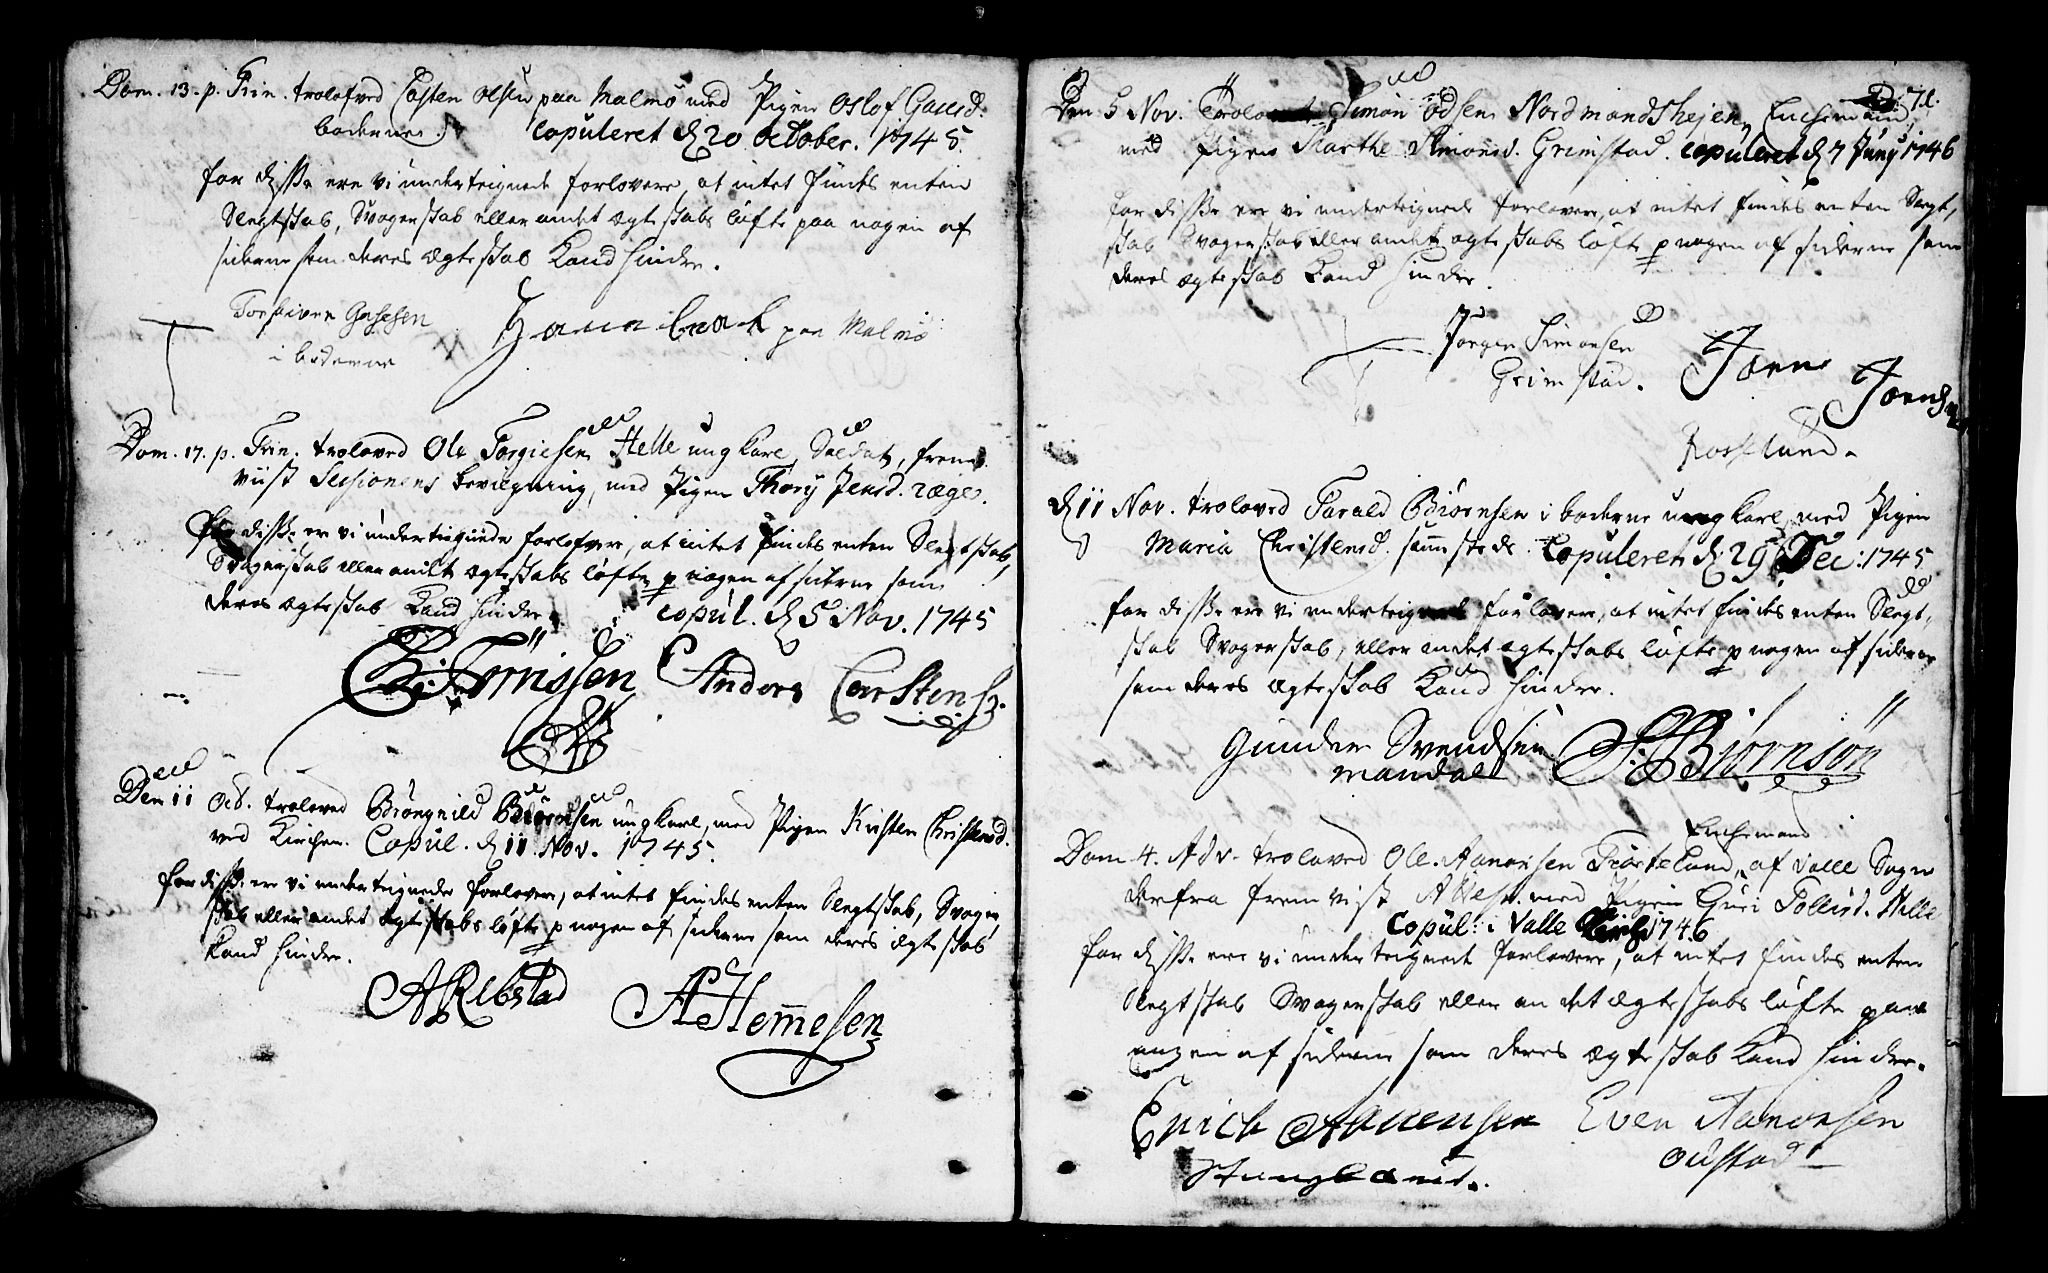 Dom. 13. p. Trin. trolofved Casten Olsen paa Malmö med Pigen Oslof Gaudsd.
boderne. Copuleret d. 20 October. 1745.
for disse ere vi underteignede forlovere, at intet findes enten
Slegtskab, Svogerskab eller andet ægteskabs løfte paa nogen af
siderne som deres ægteskab kand hindre.
Torbiörn
i boderne
paa Malmö
Dom. 17. p. Trin. troloved Ole Torgiesen Helle ungkarl, Soldat, frem
viist Sessionens bevilgning, med Pigen Thory Jensd. ræge.
For disse er vi underteignede forlofvere, at intet findes enten Slegtskab,
Svogerskab eller andet ægteskabs løfte p nogen af siderne som
deres ægteskab kand hindre.
Copul. d. 5 Nov. 1745
Anders Carstensz.
Den 11 Oct. troloved Brönnild Biörnsen ungkarl, med Pigen Kirsten Christensd.
ved Kirchen. Copul. d. 11 Nov. 1745.
for disse er vi underteignede forlovere, at intet findes enten Slegtskab, Svoger,
skab eller andet ægteskabs løfte p nogen af siderne som deres ægteskab
kand hindre.
ARebstad AHemmesen
71.
Den 5 Nov. Simon Nordmandshejen, Enchemand,
med Pigen Marthe Simonsd. Grimstad. Copuleret d. 7 Juny 1746
for disse ere vi underteignede forlovere, at intet findes enten Slegt,
skab Svogerskab eller andet ægteskabs løfte p nogen af siderne som
deres ægteskab kand hindre.
Jörgen Simonsen
Grimstad.
d. 11 Nov. troloved Tarald Biörnsen i boderne ungkarl, med Pigen
Maria Christensd. samme steds. Copuleret d. 29 Dec: 1745
for disse ere vi underteignede forlovere, at intet findes enten Slegt,
skab Svogerskab, eller andet ægteskabs løfte p nogen af siderne
som deres ægteskab kand hindre.
Gunder Svendsen
mandal
Biörnsön
Enchemand
Dom 4. Adv. troloved Ole Aanonsen af Valle Sogn
derfra fremvist Attest. med Pigen Guri Tollisd. Helle
Copul. i Valle 1746
for disse ere vi underteignede forlovere, at intet findes enten
Slegtskab Svogerskab eller andet ægteskabs løfte paa
nogen af siderne som deres ægteskab kand hindre.
Erich Aanensen Even Aanonsen